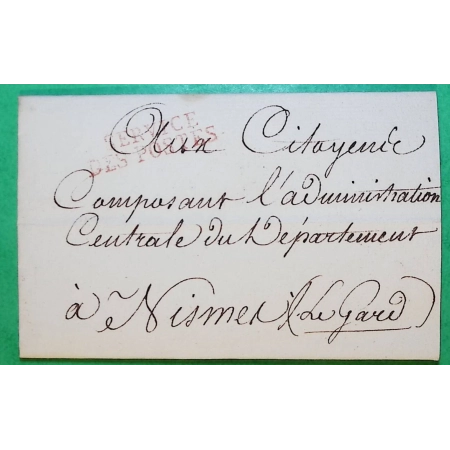 SERVICE
DES POSTES
Aux Citoyens
Composant l'administration
Centrale du Département
à Nismes (Le Gard)